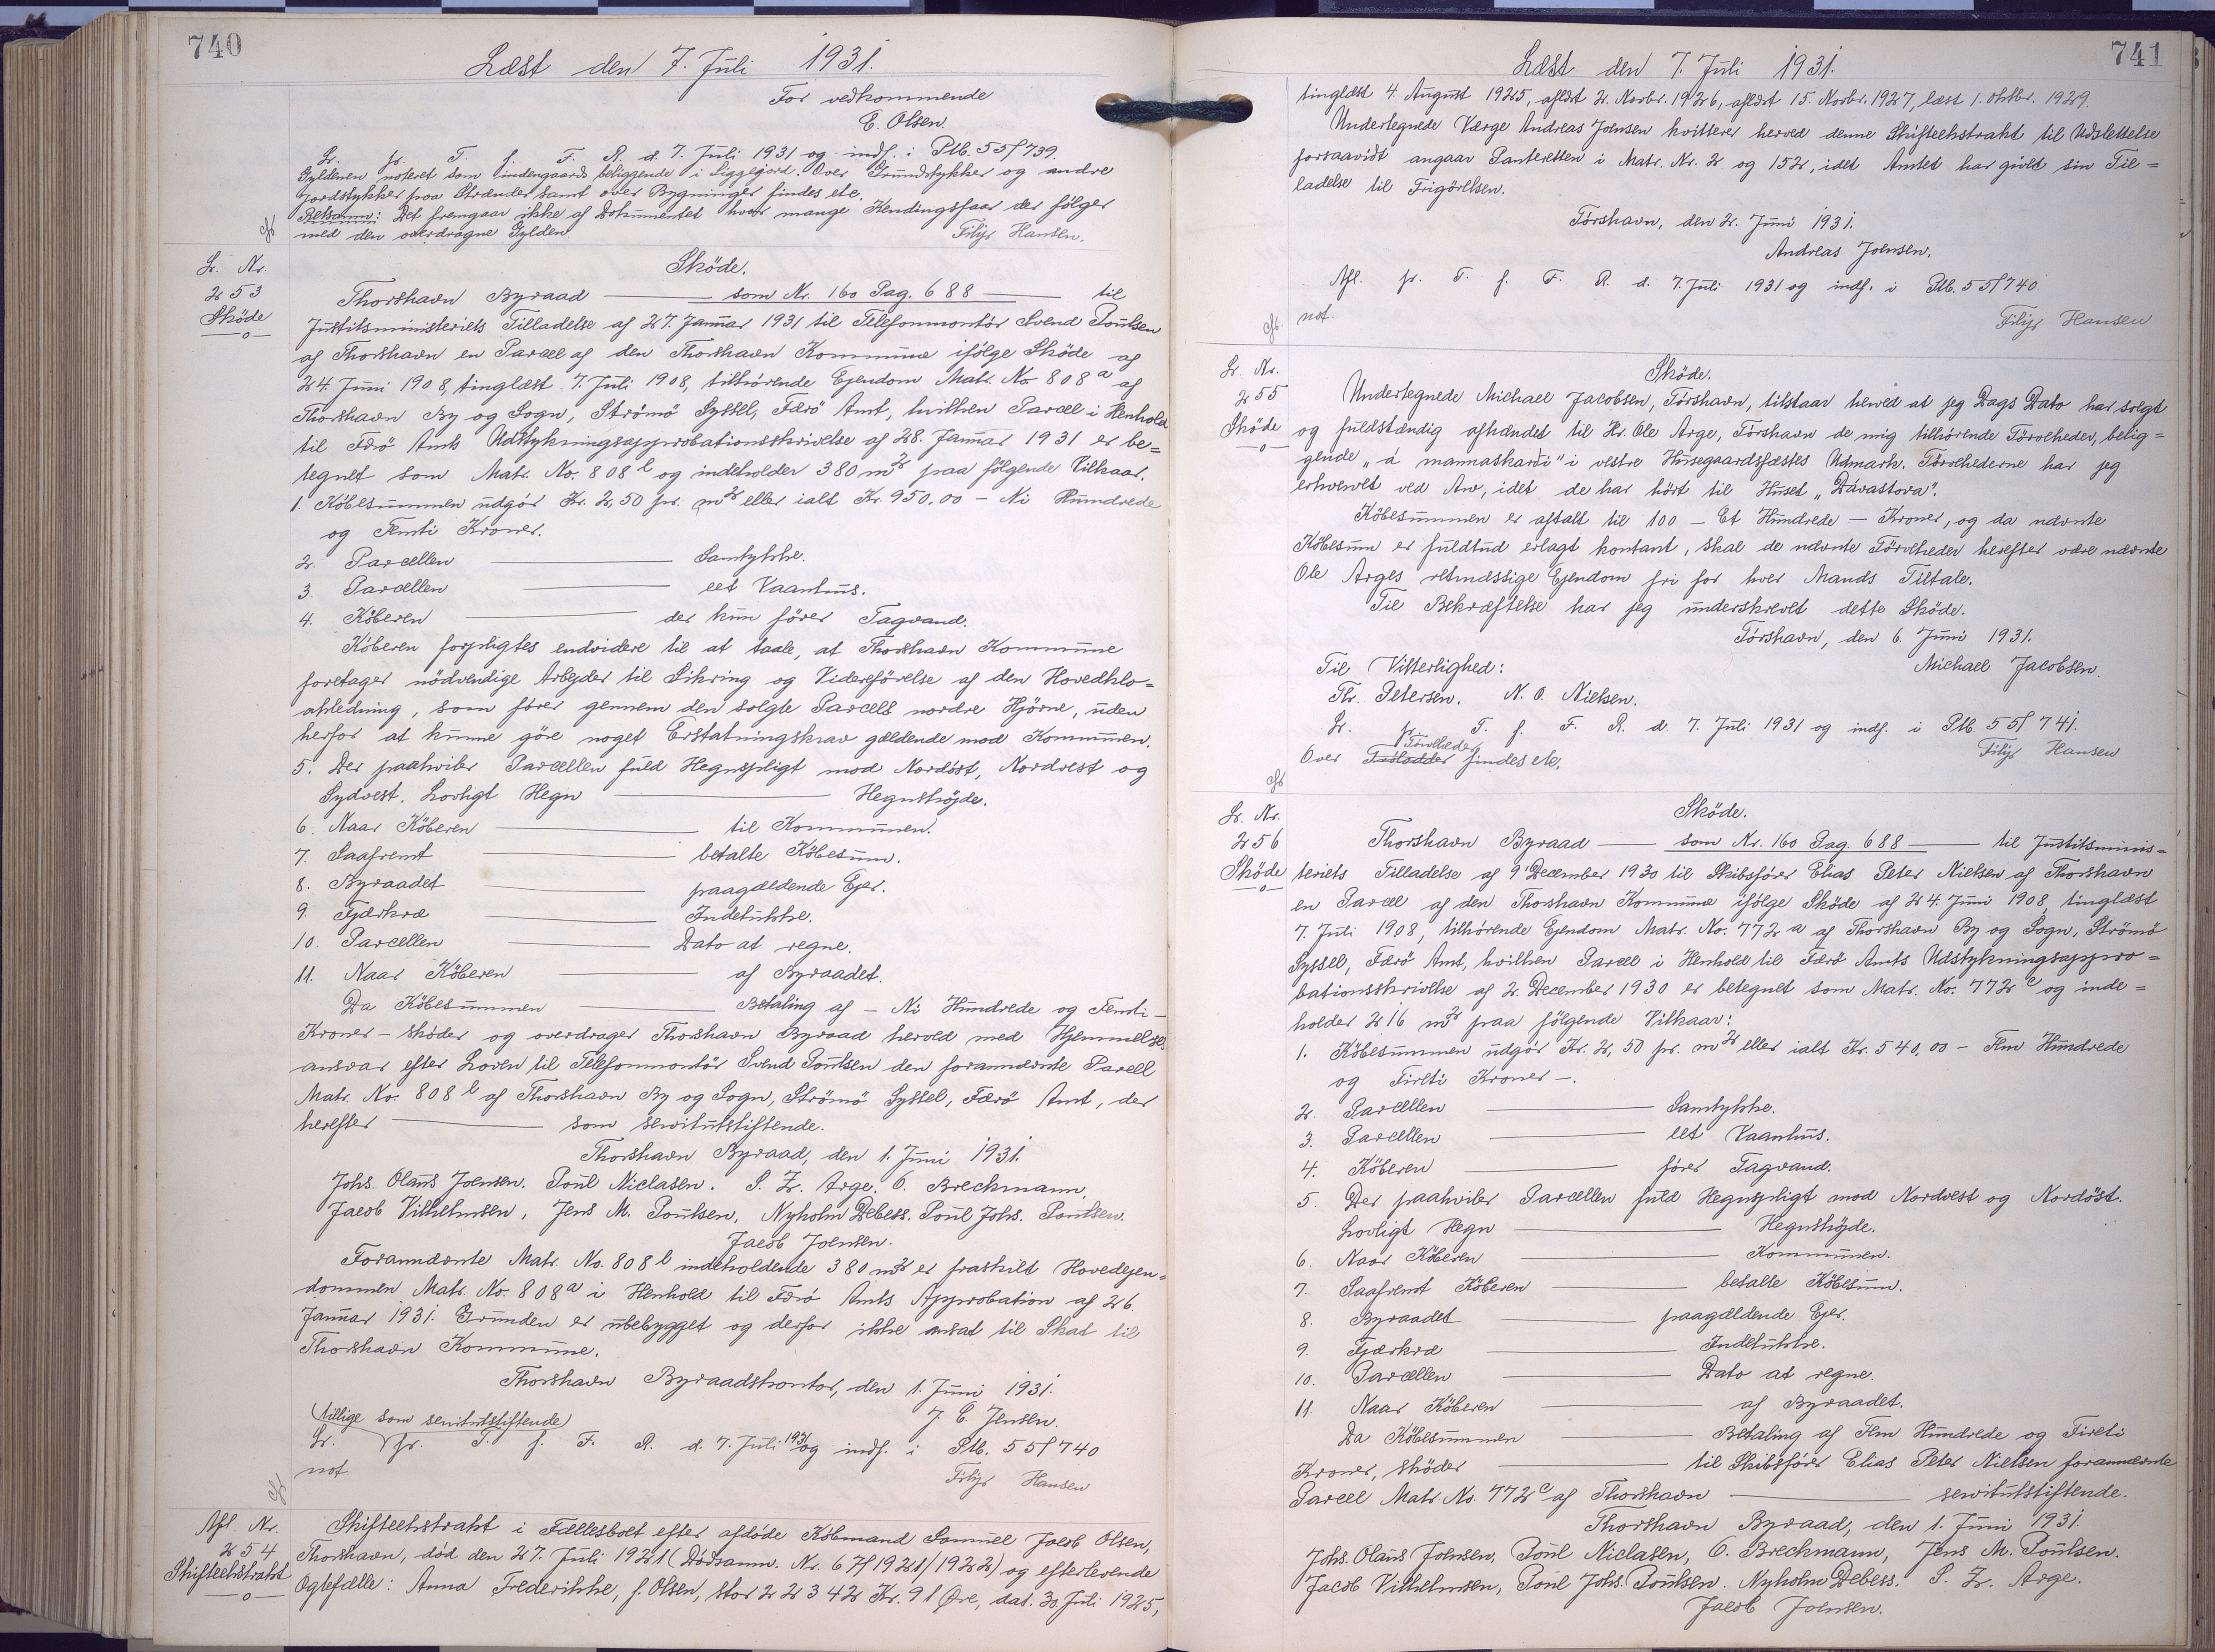 740
Læst den 7. Juli 1931.
For vedkommende
E. Olsen.
Lr. pr. T. f. F. R. d. 7. Juli 1931 og indf. i Ptb. 55f 739.
Gyldenen noteret som indengaards beliggende i Liggejord. Over Grundstykker og andre
Jordstykker paa Strænder samt over Bygninger findes etc.
Retsanm: Det fremgaar ikke af Dokumentet hvor mange Kendingsfaar der følger
med den overdragne Gylden.
Filip Hansen.
Lr. Nr.
253
Sköde
Sköde.
Thorshavn Byraad — som Nr. 160 Pag. 688 — til
Justitsministeriets Tilladelse af 27. Januar 1931 til Telefonmontör Svend Poulsen
af Thorshavn en Parcel af den Thorshavn Kommune ifölge Sköde af
24. Juni 1908, tinglæst 7. Juli 1908, tilhörende Ejendom Matr. No 808 a af
Thorshavn By og Sogn, Strömö Syssel, Færö Amt, hvilken Parcel i Henhold
til Færö Amts Udstykningsapprobationsskrivelse af 28. Januar 1931 er be=
tegnet som Matr. No. 808 l og indeholder 380 m2 paa fölgende Vilkaar.
1. Köbesummen udgör Kr. 2,50 pr. m2 eller ialt Kr. 950.00 – Ni Hundrede
og Femti Kroner.
2. Parcellen — Samtykke.
3. Parcellen — eet Vaanhus.
4. Köberen — der kun förer Tagvand.
Köberen forpligtes endvidere til at taale, at Thorshavn Kommune
foretager nödvendige Arbejder til Sikring og Videreförelse af den Hovedklo=
akledning, som förer gennem den solgte Parcels nordre Hjörne, uden
herfor at kunne göre noget Erstatningskrav gældende mod Kommunen.
5. Der paahviler Parcellen fuld Hegnspligt mod Nordöst, Nordvest og
Sydvest. Lovligt Hegn — Hegnshöjde.
6. Naar Köberen — til Kommunen.
7. Saafremt — betalte Köbesum.
8. Byraadet — paagældende Ejer.
9. Fjærkræ — Indelukke.
10. Parcellen — Dato at regne.
11. Naar Köberen — af Byraadet.
Da Köbesummen — Betaling af – Ni Hundrede og Femti –
Kroner – sköder og overdrager Thorshavn Byraad herved med Hjemmelses
ansvar efter Loven til Telefonmontör Svend Poulsen den forannævnte Parcell
Matr. No. 808 l af Thorshavn By og Sogn, Strömö Syssel, Færö Amt, der
herefter — som servitutstiftende.
Thorshavn Byraad, den 1. Juni 1931.
Johs. Olaus Joensen. Poul Niclasen. S. Z. Arge. O. Breckmann.
Jacob Vilhelmsen, Jens M. Poulsen, Nyholm Debess. Poul Johs. Poulsen.
Jacob Joensen.
Forannævnte Matr. No. 808 l indeholdende 380 m2 er fraskilt Hovedejen=
dommen Matr. No. 808 a i Henhold til Færö Amts Approbation af 26.
Januar 1931. Grunden er ubebygget og derfor ikke ansat til Skat til
Thorshavn Kommune.
Thorshavn Byraadskontor, den 1. Juni 1931.
J. C. Jensen.
(tillige som servitutstiftende)
Lr. pr. T. f. F. R. d. 7. Juli 1931 og indf. i Ptb. 55f 740
not.
Filip Hansen
Afl Nr.
254
Skifteekstrakt
Skifteekstrakt i Fællesboet efter afdöde Köbmand Samuel Jacob Olsen,
Thorshavn, död den 27. Juli 1921 (Dödsanm. Nr. 67/1921/1922) og efterlevende
Ægtefælle: Anna Frederikke, f. Olsen, stor 22342 Kr. 91 Øre, dat. 30. Juli 1925,
741
Læst den 7. Juli 1931.
tinglæst 4. August 1925, aflæst 2. Novbr. 1926, aflæst 15. Novbr. 1927, læst 1. Oktbr. 1929.
Undertegnede Værge Andreas Joensen kvitterer herved denne Skifteekstrakt til Udslettelse
forsaavidt angaar Panteretten i Matr. Nr. 2 og 152, idet Amtet har givet sin Til=
ladelse til Frigörelsen.
Tórshavn, den 2. Juni 1931.
Andreas Joensen.
Afl. pr. T. f. F. R. d. 7. Juli 1931 og indf. i Ptb. 55f 740
not.
Filip Hansen
Lr. Nr.
255
Sköde
Sköde.
Undertegnede Michael Jacobsen, Tórshavn, tilstaar herved at jeg Dags Dato har solgt
og fuldstændig afhændet til Hr. Ole Arge, Tórshavn de mig tilhörende Törveheder, belig=
gende „á mannaskarði" i vestre Husegaardsfæstes Udmark. Törvehederne har jeg
erhvervet ved Arv, idet de har hört til Huset „Dávastova".
Köbesummen er aftalt til 100 – Et Hundrede – Kroner, og da nævnte
Köbesum er fuldtud erlagt kontant, skal de nævnte Törveheder herefter være nævnte
Ole Arges retmæssige Ejendom fri for hver Mands Tiltale.
Til Bekræftelse har jeg underskrevet dette Sköde.
Tórshavn, den 6. Juni 1931.
Michael Jacobsen.
Til Vitterlighed:
Thr. Petersen. N. O. Nielsen.
Lr. pr. T. f. F. R. d. 7. Juli 1931 og indf. i Ptb. 55f 741.
Törveheder
Over findes etc.
Filip Hansen
Lr. Nr.
256
Sköde
Sköde.
Thorshavn Byraad — som Nr. 160 Pag. 688 — til Justitsminis=
teriets Tilladelse af 9 December 1930 til Skibsförer Elias Peter Nielsen af Thorshavn
en Parcel af den Thorshavn Kommune ifölge Sköde af 24. Juni 1908, tinglæst
7. Juli 1908, tilhörende Ejendom Matr. No. 772 a af Thorshavn By og Sogn, Strömö
Syssel, Færö Amt, hvilken Parcel i Henhold til Færö Amts Udstykningsappro=
bationsskrivelse af 2. December 1930 er betegnet som Matr. No. 772 c og inde=
holder 216 m2 paa fölgende Vilkaar:
1. Köbesummen udgör Kr. 2,50 pr. m2 eller ialt Kr. 540,00 – Fem Hundrede
og Firti Kroner –.
2. Parcellen — Samtykke.
3. Parcellen — eet Vaanhus.
4. Köberen — förer Tagvand.
5. Der paahviler Parcellen fuld Hegnspligt mod Nordvest og Nordöst.
Lovligt Hegn — Hegnshöjde.
6. Naar Köberen — Kommunen.
7. Saafremt Köberen — betalte Köbesum.
8. Byraadet — paagældende Ejer.
9. Fjærkræ — Indelukke.
10. Parcellen — Dato at regne.
11. Naar Köberen — af Byraadet.
Da Köbesummen — Betaling af Fem Hundrede og Fireti
Kroner, sköder — til Skibsförer Elias Peter Nielsen forannævnte
Parcel Matr No. 772 c af Thorshavn — servitutstiftende.
Thorshavn Byraad, den 1. Juni 1931.
Johs. Olaus Joensen, Poul Niclasen, O. Breckmann, Jens M. Poulsen.
Jacob Vilhelmsen, Poul Johs. Poulsen. Nyholm Debess. S. Z. Arge.
Jacob Joensen.